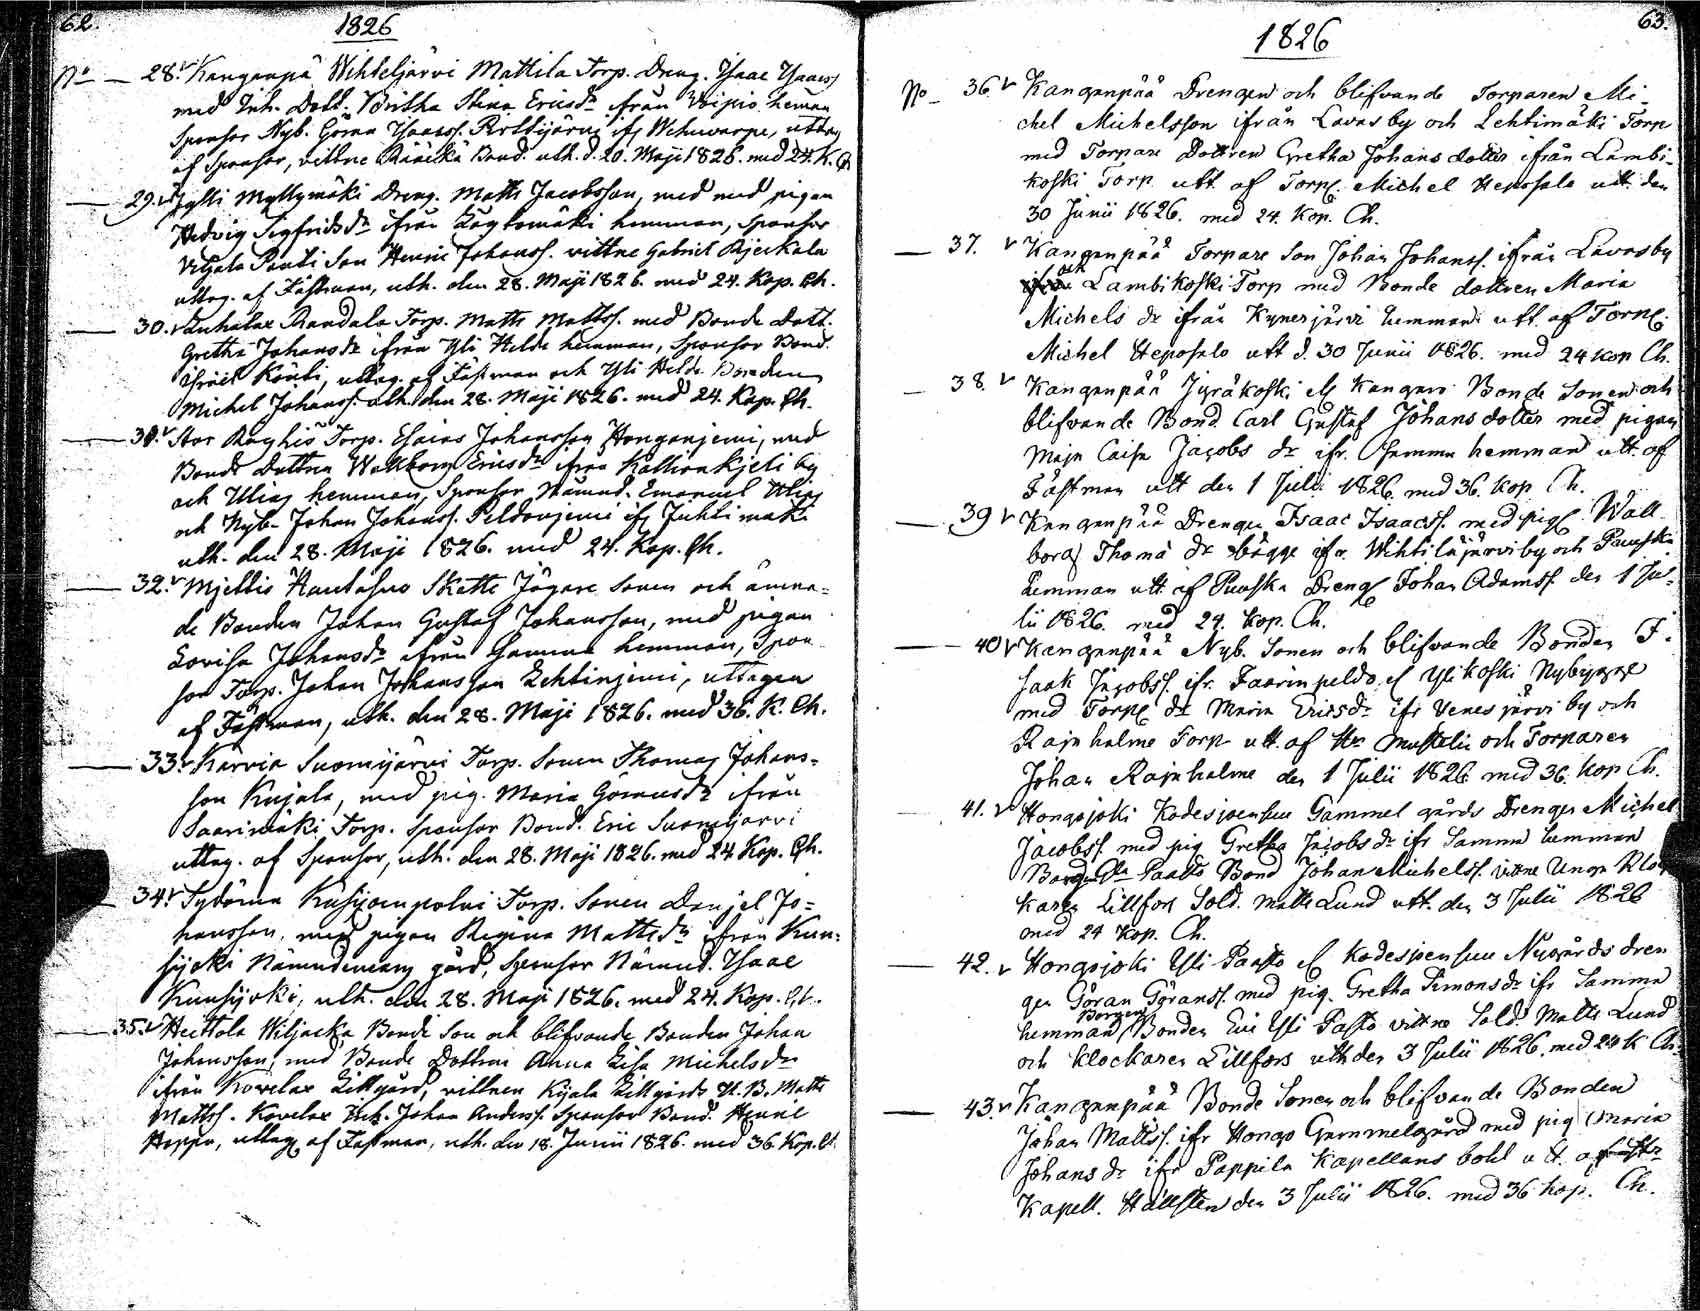 62.
1826
No — 28. Kanganpä Wihteljärvi Mattila Torp. Dreng. Isaac Isaacss
med Inh. Dott. Britha Stina Ericsdr ifrån Woipio heman
Sponsor Nyb. Göran Isaacss. uttag
af Sponsor, vittne Bond. uth. d. 20. Maji 1826. med 24. K. Ch
— 29. Myllymäki Dreng. Matts Jacobsson, med med pigan
Hedvig Sigfridsdr ifrån hemman, Sponsor
Pouti Son Henric Johanss. vittne Gabriel
uttag. af Fästman, uth. den 28. Maji 1826. med 24. Kop. Ch.
— 30. Randala Torp. Matts Mattss. med Bonde Dott.
Gretha Johansdr ifrån Yli Hilde hemman, Sponsor Bond.
Israel Kouti, uttag. af Fästman och Yli Hilde Bonden
Michel Johanss. uth. den 28. Maji 1826. med 24. Kop. Ch.
— 31. Stor Raghis Torp. Esaias Johansson Honganjemi, med
Bonde Dottren Wallborg Ericsdr ifrån Kallionkjeli by
och Ulias hemman, Sponsor Nämnd. Emanuel Ulias
och Nyb. Johan Johanss. Peldonjemi ifs Juhtimäki
uth. den 28. Maji 1826. med 24. Kop. Ch.
— 32. Mjettis Hautasuo Skatte Jägare Sonen och ämna=
de Bonden Johan Gustaf Johansson, med pigan
Lovisa Johansdr ifrån Samma hemman, Spon
sor Torp. Johan Johansson Lehtinjemi, uttagen
af Fästman, uth. den 28. Maji 1826. med 36. K. Ch.
— 33. Karvia Suomijärvi Torp. Sonen Thomas Johans=
son Kujala, med pig. Maria Göransdr ifrån
Saarimäki Torp. Sponsor Bond. Eric Suomijärvi
uttag. af Sponsor, uth. den 28. Maji 1826. med 24 Kop. Ch.
34. Torp. Sonen Danjel Jo=
hansson, med pigan Regina Mattsdr ifrån Kun-
sijoki Nämndemans gård, Sponsor Nämnd. Isaac
Kunsijoki, uth. den 28. Maji 1826. med 24. Kop. Ch.
— 35. Heittola Wiljacka Bonde Son och blifvande Bonden Johan
Johansson, med Bonde Dottren Anna Lisa Michelsdr
ifrån Kovelax Lillgård, vittnen Kijala Lillgårds U. B. Matts
Mattss. Kovelax Johan Anderss. Sponsor Bond. Henric
Hoppu, uttag af Fästman, uth. den 18. Junii 1826. med 36. Kop. Ch.
63.
1826
No — 36. Kanganpää Drengen och blifvande Torparen Mi-
chel Michelsson ifrån Lavas by och Lehtimäki Torp
med Torpare Dottren Gretha Johans dotter ifrån Lambi-
koski Torp utt. af Torp. Michel Heposalo utt. den
30 Junii 1826. med 24. Kop. Ch.
— 37. Kanganpää Torpare Son Johan Johanss. ifrån Lavasby
och Lambikoski Torp med Bonde dottren Maria
Michels dr ifrån Kynesjärvi hemman utt. af Torp.
Michel Heposalo utt d. 30 Junii 1826. med 24 kop Ch.
— 38. Kanganpää Jyräkoski el Kangas Bonde Sonen och
blifvande Bond Carl Gustaf Johans dotter med pigan
Maja Caisa Jacobs dr ifr. Samma hemman utt. af
Fästman utt den 1 Julii 1826. med 36. kop Ch.
— 39 Kanganpää Drengen Isaac Isaacss. med pig Wall
borg Thoma dr bägge ifr. Wihtiläjärvi by och Pauska
hemman utt. af Pauska Dreng Johan Adamss. den 1 Ju-
lii 1826. med 24. Kop. Ch.
— 40 Kanganpää Nyb. Sonen och blifvande Bonden I-
saak Jacobss. ifr. Faarinpeldo el Ylikoski Nybygge
med Torp dr Maria Ericsdr ifr Venesjärvi by och
Rajnholme Torp utt. af Hr Mustelin och Torparen
Johan Rajnholme den 1 Julii 1826 med 36. Kop Ch.
41. Hongojoki Kodesjoensuu Gammel gårds Drengen Michel
Jacobss. med pig Gretha Jacobs dr ifr Samma hemman
Paatto Bond Johan Michelss. vittne Unga Kloc
karen Lillfors Sold. Matts Lund utt. den 3 Julii 1826
med 24 Kop. Ch.
— 42. Hongojoki Yli Paasto el Kodesjoensuu Nygårds dren
gen Göran Göranss. med pig. Gretha Simonsdr ifr Samma
hemman Borgen Bonden Eric Yli Pasto vittne Sold. Matts Lund
och klockaren Lillfors utt den 3 Julii 1826. med 24 K Ch.
— 43. Kanganpää Bonde Sonen och blifvande Bonden
Johan Mattss. ifr Hongo Gammelgård med pig Maria
Johans dr ifr Pappila Kapellans bohl utt. af Hr
Kapell. Hällsten den 3 Julii 1826. med 36 kop. Ch.